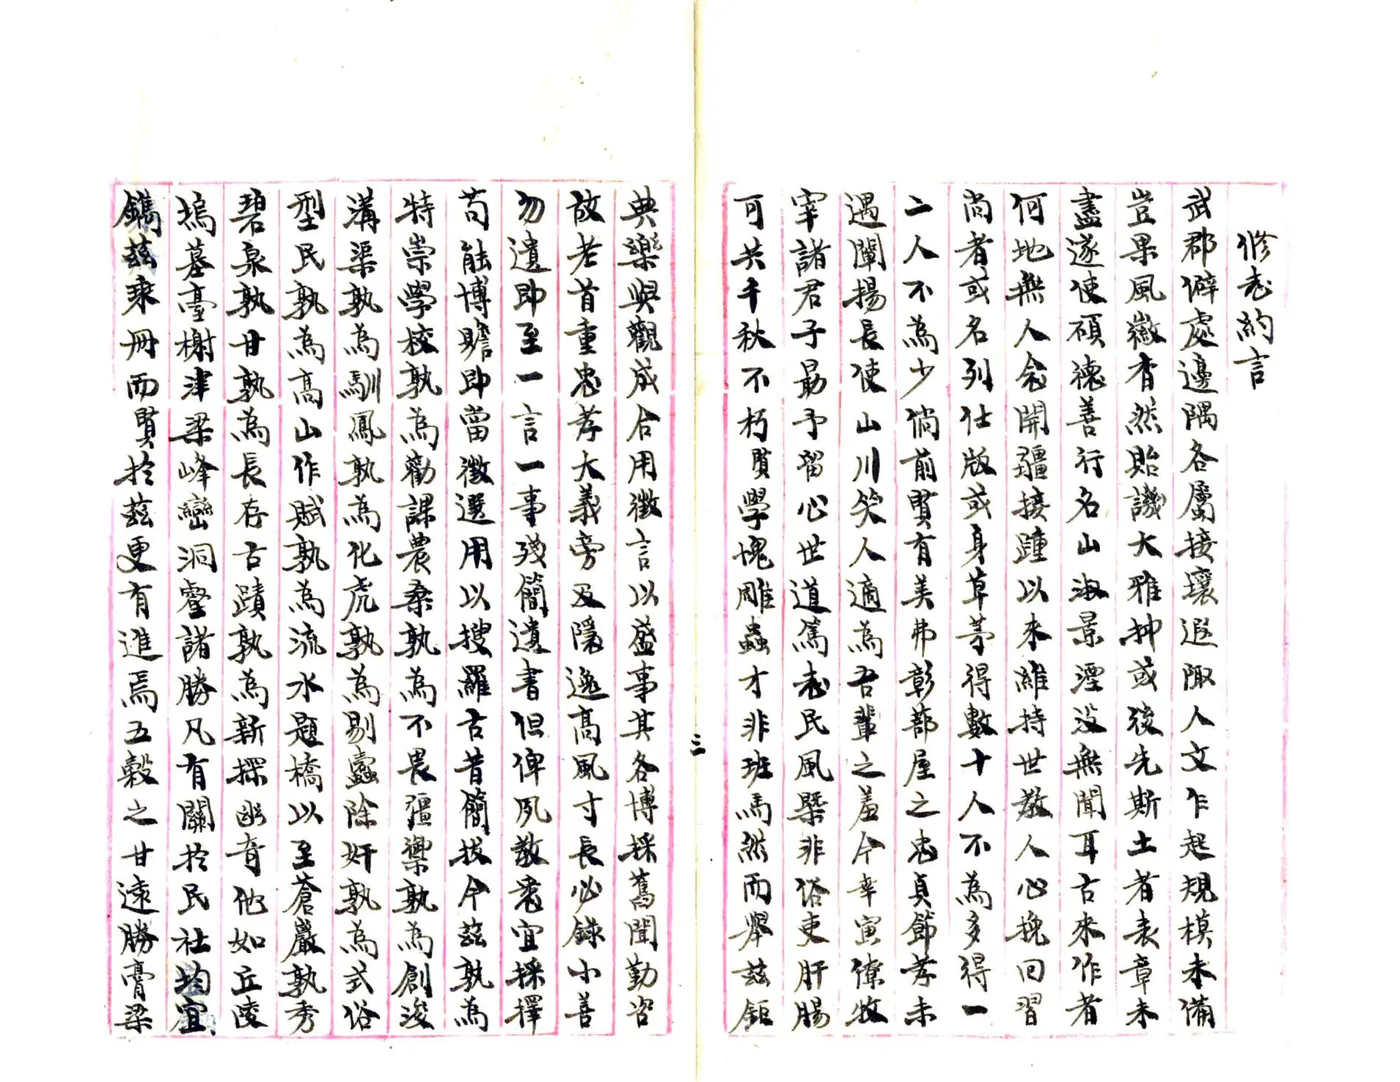 修志約言
武郡僻處邊隅各屬接壤遐陬人文乍起規模未備
豈果風徽杳然貽譏大雅抑或後先斯土者表章未
盡遂使碩德善行名山淑景湮沒無聞耳古來作者
何地無人念開疆接踵以來維持世教人心挽回習
尚者或名列仕版或身草莽得數十人不為多得一
二人不為少倘前賢有美弗彰蔀屋之忠貞節孝未
遇闡揚長使山川笑人適為吾輩之羞今幸寅僚牧
宰諸君子勗予留心世道篤志民風槩非俗吏肝腸
可共千秋不朽賢學愧雕蟲才非班馬然而舉茲鉅
典樂與觀成合用徵言以益事其各博採舊聞勤咨
故老首重忠孝大義旁及隱逸高風寸長必錄小善
勿遺即至一言一事殘簡遺書但俾風教裒宜採擇
苟能博贍即當徵選用以搜羅古昔簡拔今茲孰為
特崇學校孰為勸課農桑孰為不畏彊禦孰為創浚
溝渠孰為馴鳳孰為化虎孰為剔蠹除奸孰為式俗
型民孰為高山作賦孰為流水題橋以至蒼巖孰秀
碧泉孰甘孰為長存古蹟孰為新探幽奇他如丘陵
塢墓臺榭津梁峰巒洞壑諸勝凡有關於民社均宜
鐫茲乘冊而賢於茲更有進焉五穀之甘遠勝膏粱
三